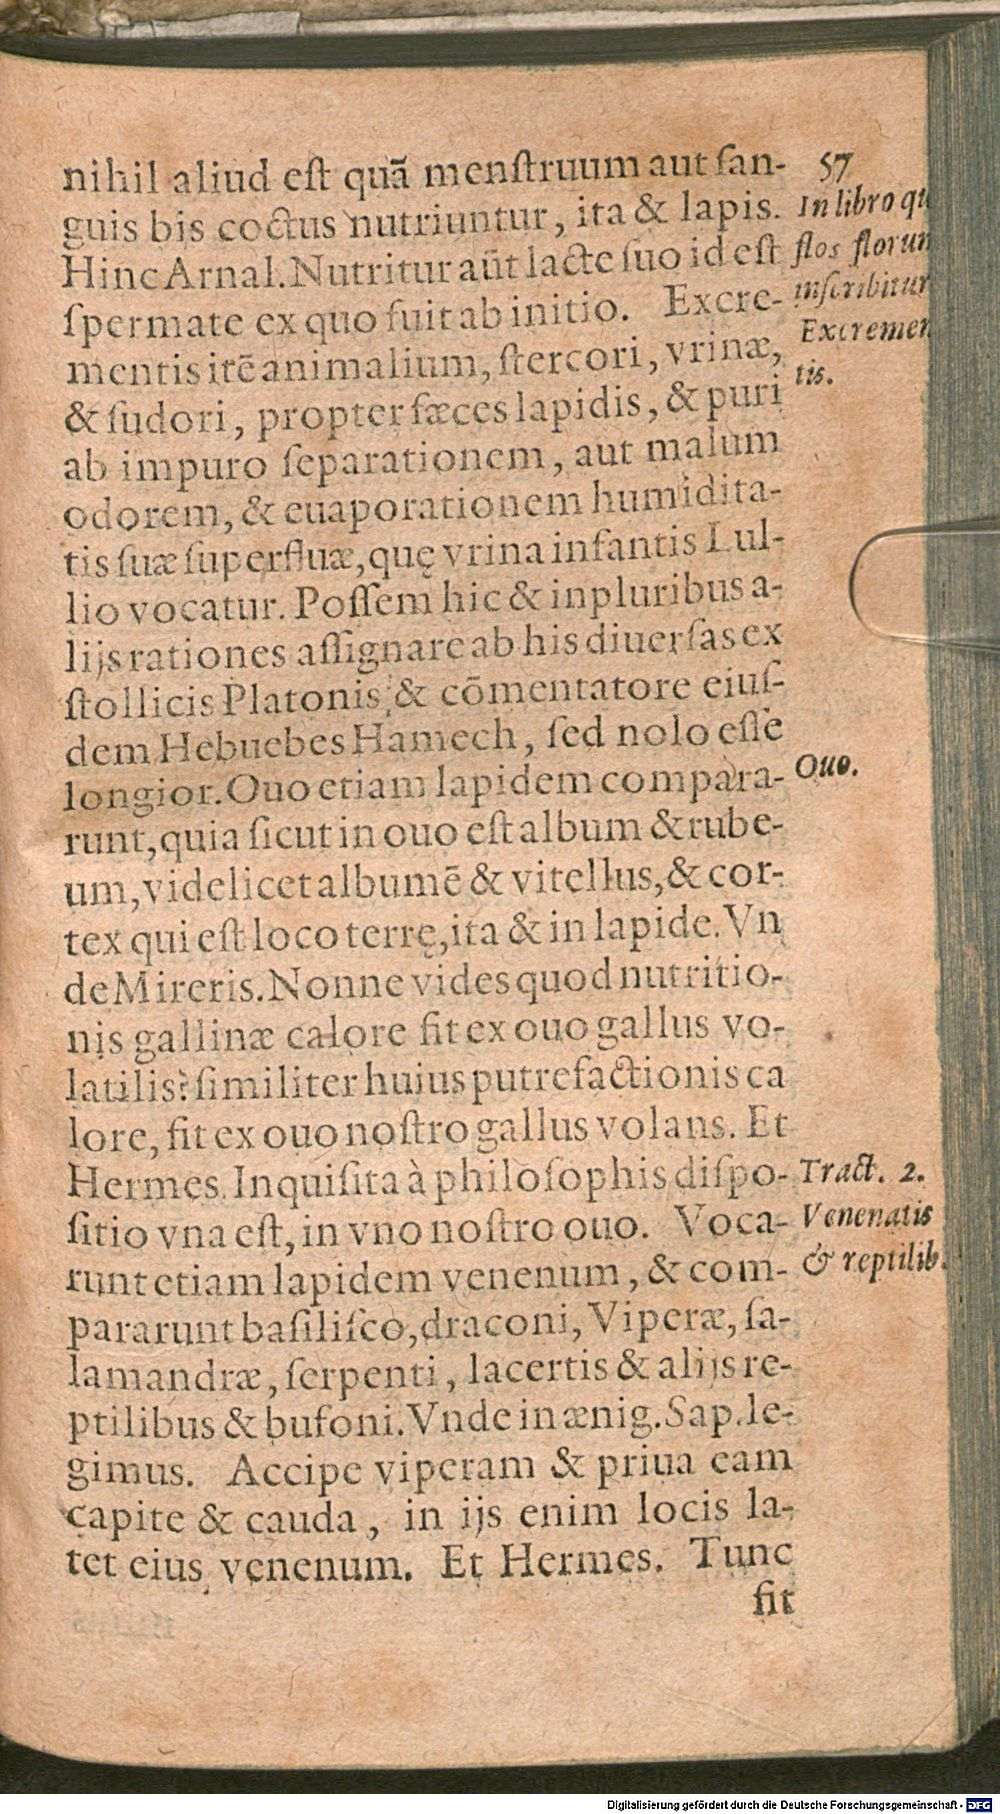 57
nihil aliud eſt quã menſtruum aut ſan-
guis bis coctus nutriuntur, ita & lapis.
Hinc Arnal. Nutritur aũt lacte ſuo id eſt
ſpermate ex quo fuit ab initio. Excre-
mentis itẽ animalium, ſtercori, vrinæ,
& ſudori, propter fæces lapidis, & puri
ab impuro ſeparationem, aut malum
odorem, & euaporationem humidita-
tis ſuæ ſuperfluæ, quę vrina infantis Lul-
lio vocatur. Poſſem hic & in pluribus a-
lijs rationes aſſignare ab his diuerſas ex
ſtollicis Platonis, & cõmentatore eiuſ-
dem Hebuebes Hamech, ſed nolo eſſe
longior. Ouo etiam lapidem compara-
runt, quia ſicut in ouo eſt album & rube-
um, videlicet albumẽ & vitellus, & cor-
tex qui eſt loco terrę, ita & in lapide. Vn
de Mireris. Nonne vides quod nutritio-
nis gallinæ calore fit ex ouo gallus vo-
latilis? ſimiliter huius putrefactionis ca
lore, fit ex ouo noſtro gallus volans. Et
Hermes. Inquiſita à philoſophis diſpo-
ſitio vna eſt, in vno noſtro ouo. Voca-
runt etiam lapidem venenum, & com-
pararunt baſiliſco, draconi, Viperæ, ſa-
lamandræ, ſerpenti, lacertis & alijs re-
ptilibus & bufoni. Vnde in ænig. Sap. le-
gimus. Accipe viperam & priua eam
capite & cauda, in ijs enim locis la-
tet eius venenum. Et Hermes. Tunc
fit
In libro
flos florum
inſcribitur
Excremen
tis.
Ouo.
Tract. 2.
Venenatis
& reptilib.
Digitalisierung gefördert durch die Deutsche Forschungsgemeinschaft - DFG